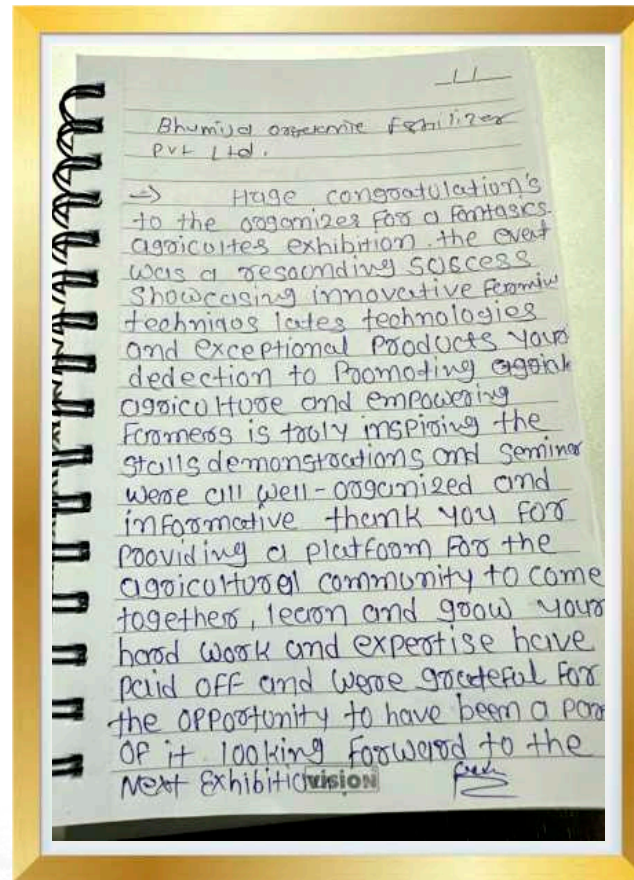 Bhumija orgeknic fertilizer
Pvt Ltd.
=> Huge congratulation's
to the organizer for a fantasics
agricultes exhibition. the event
was a resounding success
Showcasing innovative farmiw
technigos lates technologies
and exceptional Products your
dedection to Promoting
agriculture and empowering
Farmers is truly inspiring the
stalls demonstrations and seminar
were all well-organized and
informative thank you for
Providing a platform for the
agricultural community to come
together, learn and grow your
hard work and expertise have
paid off and were grateful for
the opportunity to have been a par
of it looking forward to the
Next Exhibition
vision